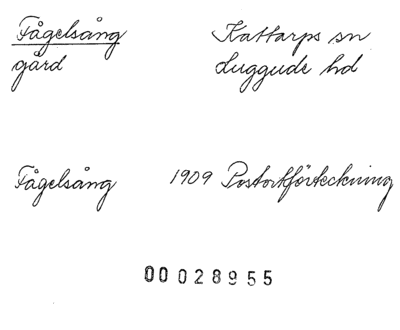 Fågelsång Kattarps sn
gård Luggude hd
Fågelsång 1909 Postortförteckning
00 028955